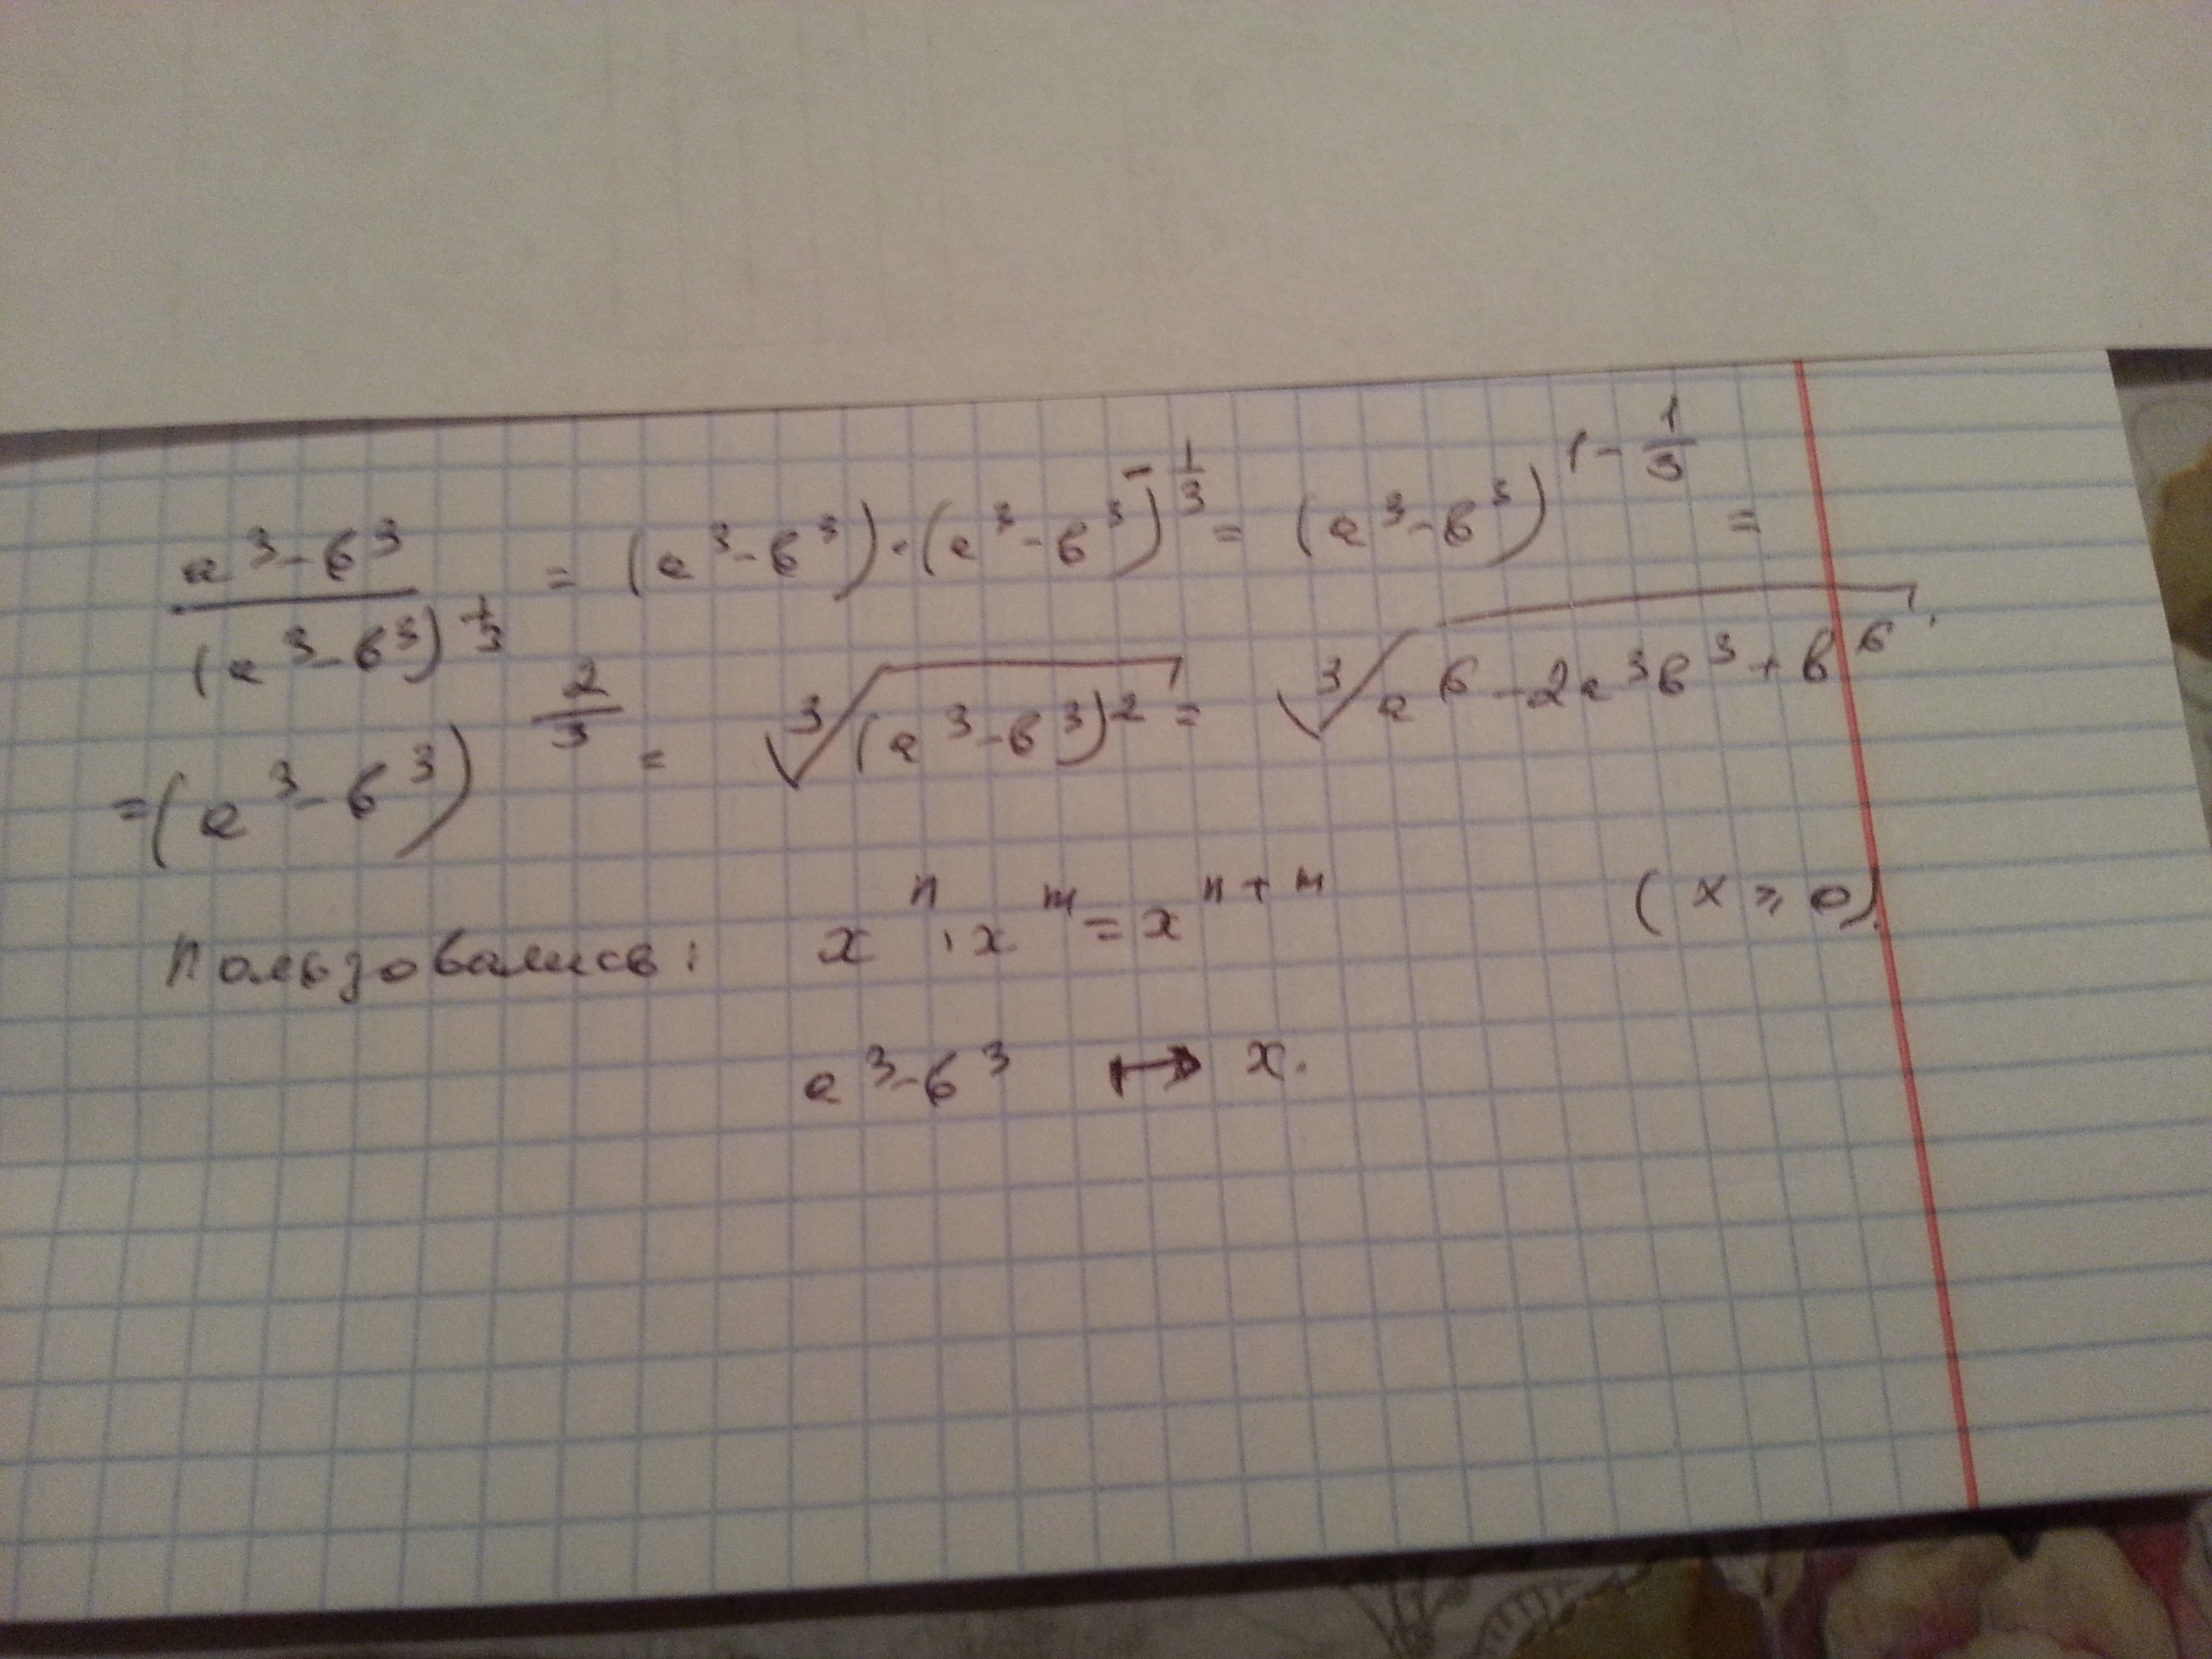 (a³-b³)/(a³-b³)^(1/3) = (a³-b³)·(a³-b³)^(-1/3) = (a³-b³)^(1-1/3) =
=(a³-b³)^(2/3) = ∛((a³-b³)²) = ∛(a⁶-2a³b³+b⁶).
Пользовались: xⁿ·xᵐ=xⁿ⁺ᵐ (x ⩾ 0).
a³-b³ ↦ x.